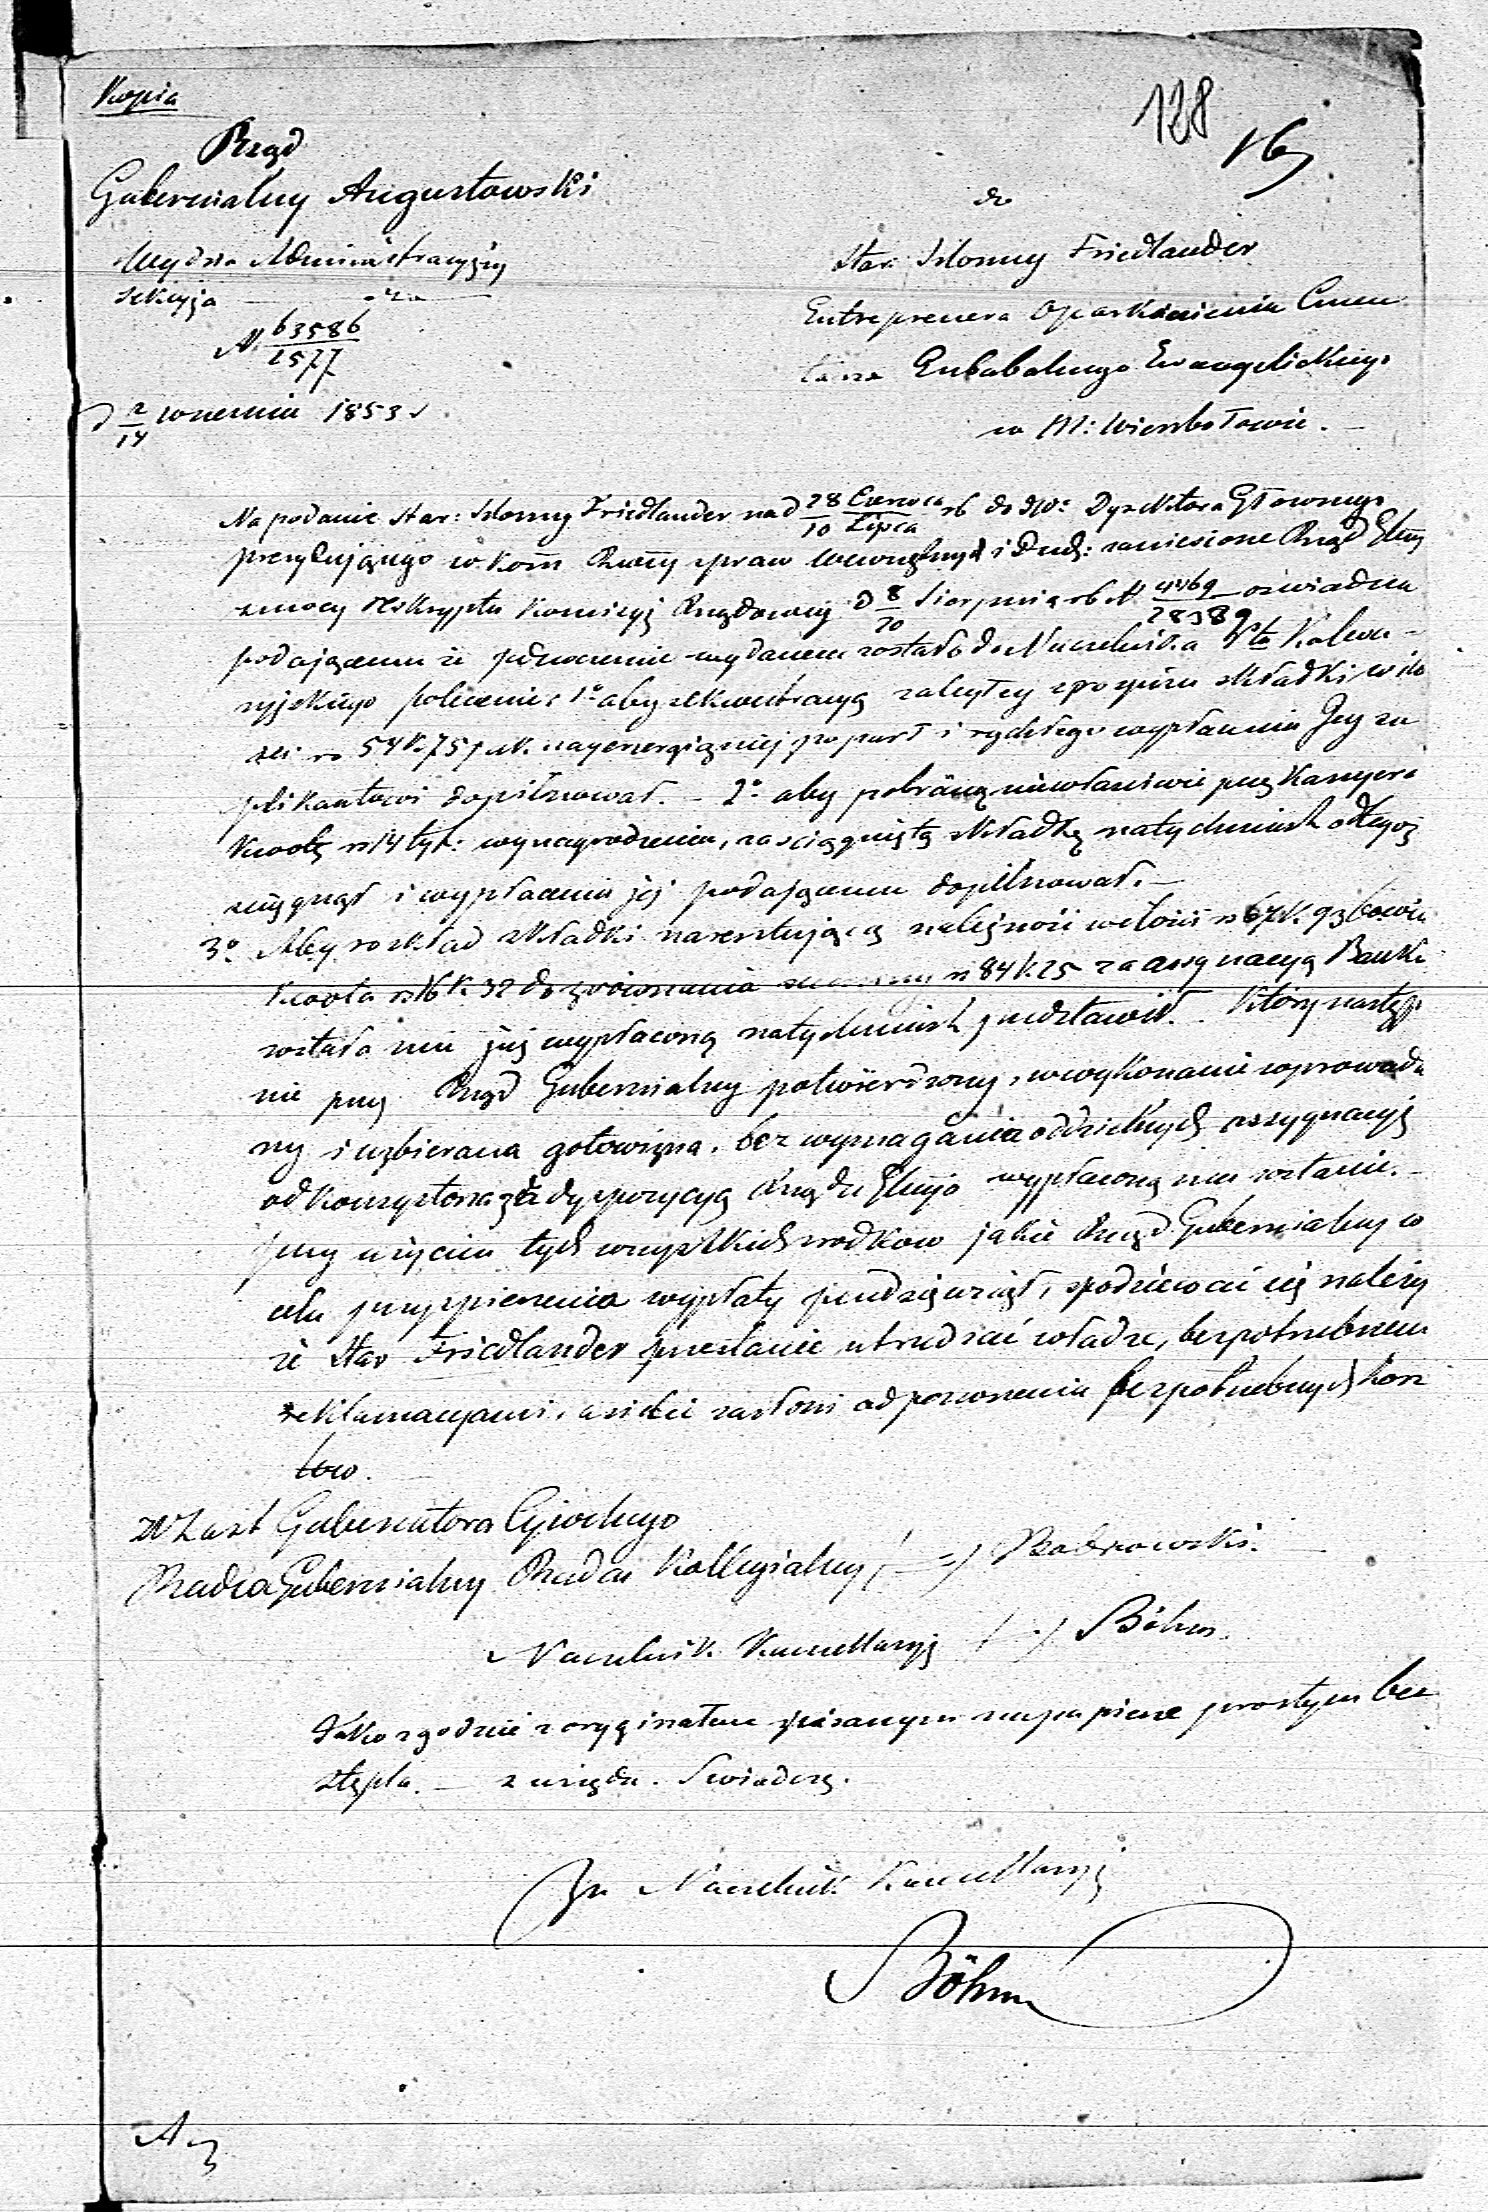 Kopia
128
16
Rząd
Gubernialny Augustowski
do
Wydział Administracyjny
Star: Slomy Friedlander
Sekcyja
Entreprenera oparkanienia Cmen
N. 63586/1577
tarza Ewangelickiego
d 2/14 wrzesnia 1853 r
w M: Wierzbołowie. —
Na podanie Star: Slomy Friedlander nad 28 Czerwca/10 Lipca rb do JW: Dyrektora Głownego
prezydującego w Kom Rząey spraw wewnętrznych i Duch: zaniesione Rząd Glny
z mocy Reskryptu Komissyi Rządowej d 8/20 Sierpnia rb N 4469/28389 oswiadcza
podającemu że powtornie wydanem zostało do Naczelnika Ptu Kalwa-
ryjskiego polecenie: 1o aby exekucyą zaległey repozycyi składki w ilo
sci rs 54 k. 75 najenergiczniej poparł i rychłego wypłacenia Jey su
plikantowi dopilnował. — 2o aby pobraną niewłasciwie przez Kassyera
kwotę rs 14 tyt: wynagrodzenia, za sciągniętą składkę natychmiast
i wypłacenia jej podającemu dopilnował. —
3o Aby rozkład składki na resztującą należnosć w ilosci rs 67 k. 93 bowiem
kwota rs 16 k 32 do zrownania summy rs 84 k. 25 za assygnacyą Banku
została mu już wypłaconą natychmiast przedstawił. Ktory następ
nie przez Rząd Gubernialny potwierdzony, w wykonanie wprowadzo
ny i uzbierana gotowizna. bez wymagania oddzielnych assygnacyj
od Konsystorza za dyspozycyą Rządu Glnego wypłaconą mu zostanie. —
przy użyciu tych wszystkich srodkow jakie Rząd Gubernialny w
celu przyspieszenia wypłaty przedsięwziął, spodziewać się należy
że Star Friedlander przestanie utrudzać władze, bezpotrzebnemi
reklamacyami, a siebie zasłoni od ponoszenia bezpotrzebnych kosz
tow.
w Zast Gubernatora Cywilnego
Radca Gubernialny Radca Kollegialny (—)
Naczelnik Kancellaryi (—) Böhm.
Jako zgodnie z oryginałem pisanym na papierze prostym bez
stępla. — z urzędu. Swiadczę.
Naczelnik Kancellaryi
Böhm